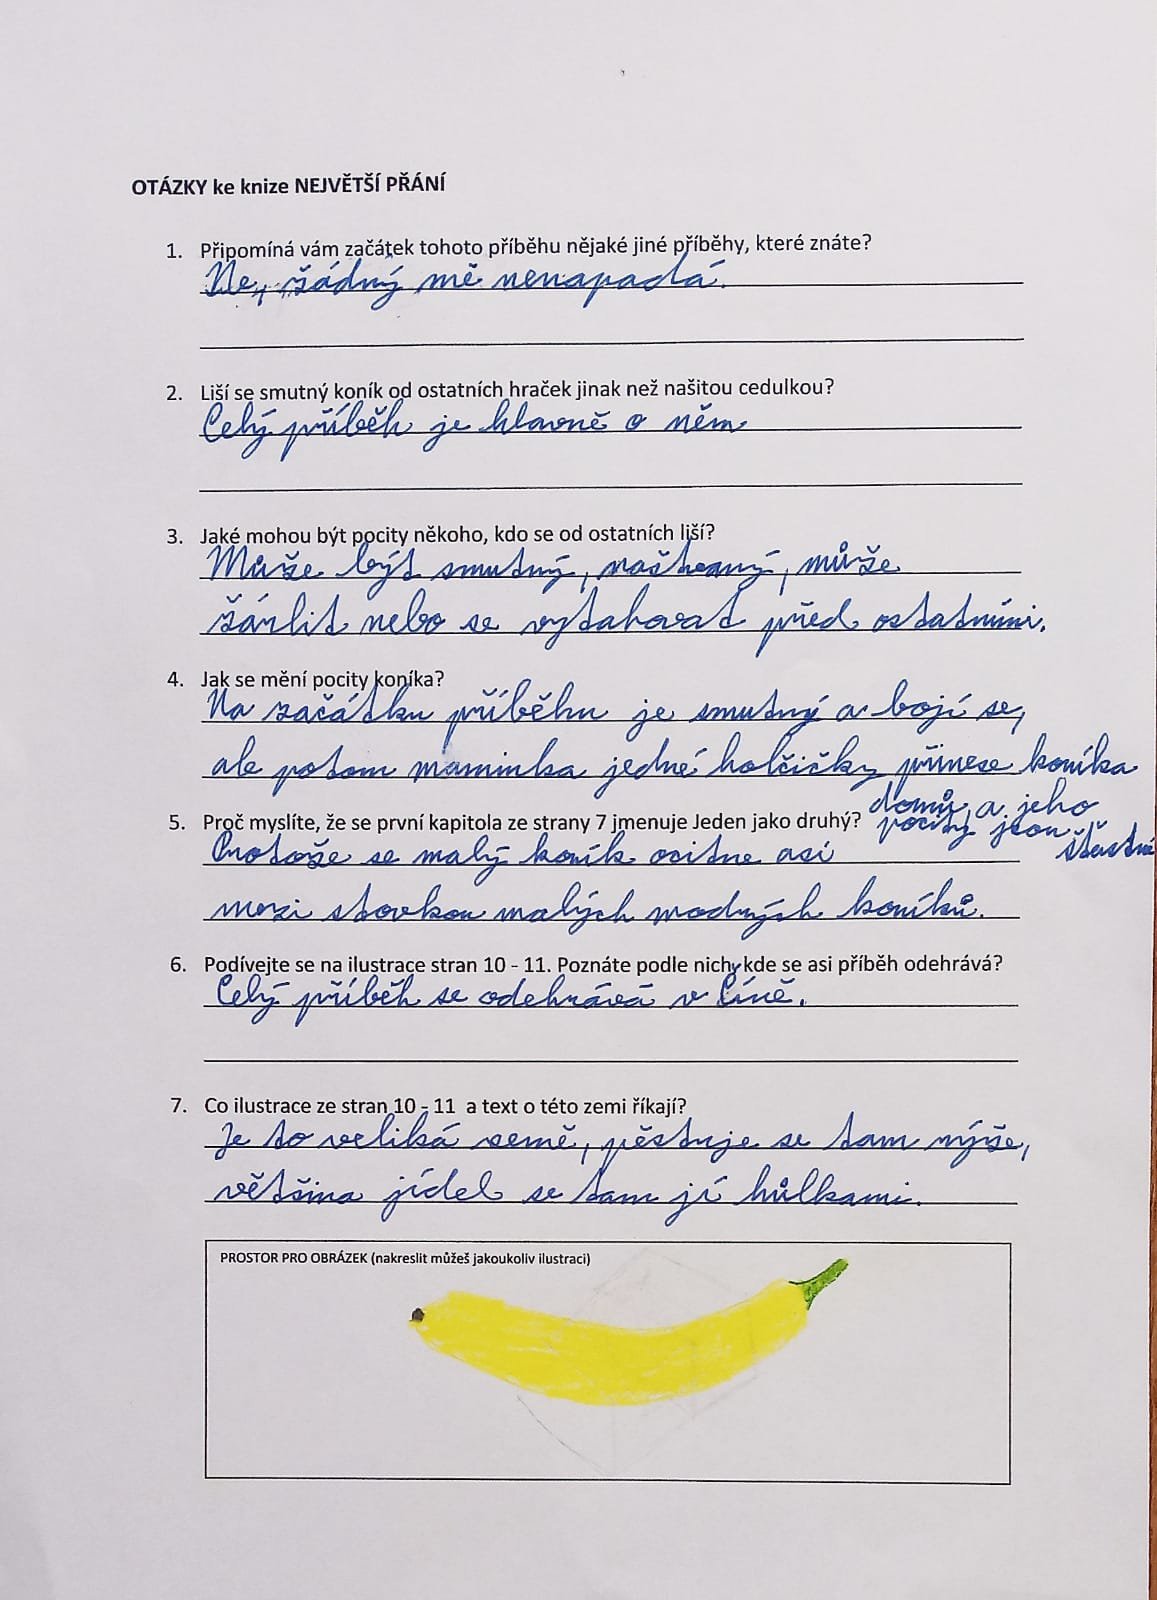 OTÁZKY ke knize NEJVĚTŠÍ PŘÁNÍ
1. Připomíná vám začátek tohoto příběhu nějaké jiné příběhy, které znáte?
Ne, žádný mě nenapadá.
2. Liší se smutný koník od ostatních hraček jinak než našitou cedulkou?
Celý příběh je hlavně o něm
3. Jaké mohou být pocity někoho, kdo se od ostatních liší?
Může být smutný, naštvaný, může
žárlit nebo se vytahovat před ostatními.
4. Jak se mění pocity koníka?
Na začátku příběhu je smutný a bojí se,
ale potom maminka jedné holčičky přinese koníka
domů a jeho
pocity jsou
šťastné
5. Proč myslíte, že se první kapitola ze strany 7 jmenuje Jeden jako druhý?
Protože se malý koník ocitne asi
mezi stovkou malých modrých koníků.
6. Podívejte se na ilustrace stran 10 - 11. Poznáte podle nich, kde se asi příběh odehrává?
Celý příběh se odehrává v Číně.
7. Co ilustrace ze stran 10 - 11 a text o této zemi říkají?
Je to veliká země, pěstuje se tam rýže,
většina jídel se tam jí hůlkami.
PROSTOR PRO OBRÁZEK (nakreslit můžeš jakoukoliv ilustraci)